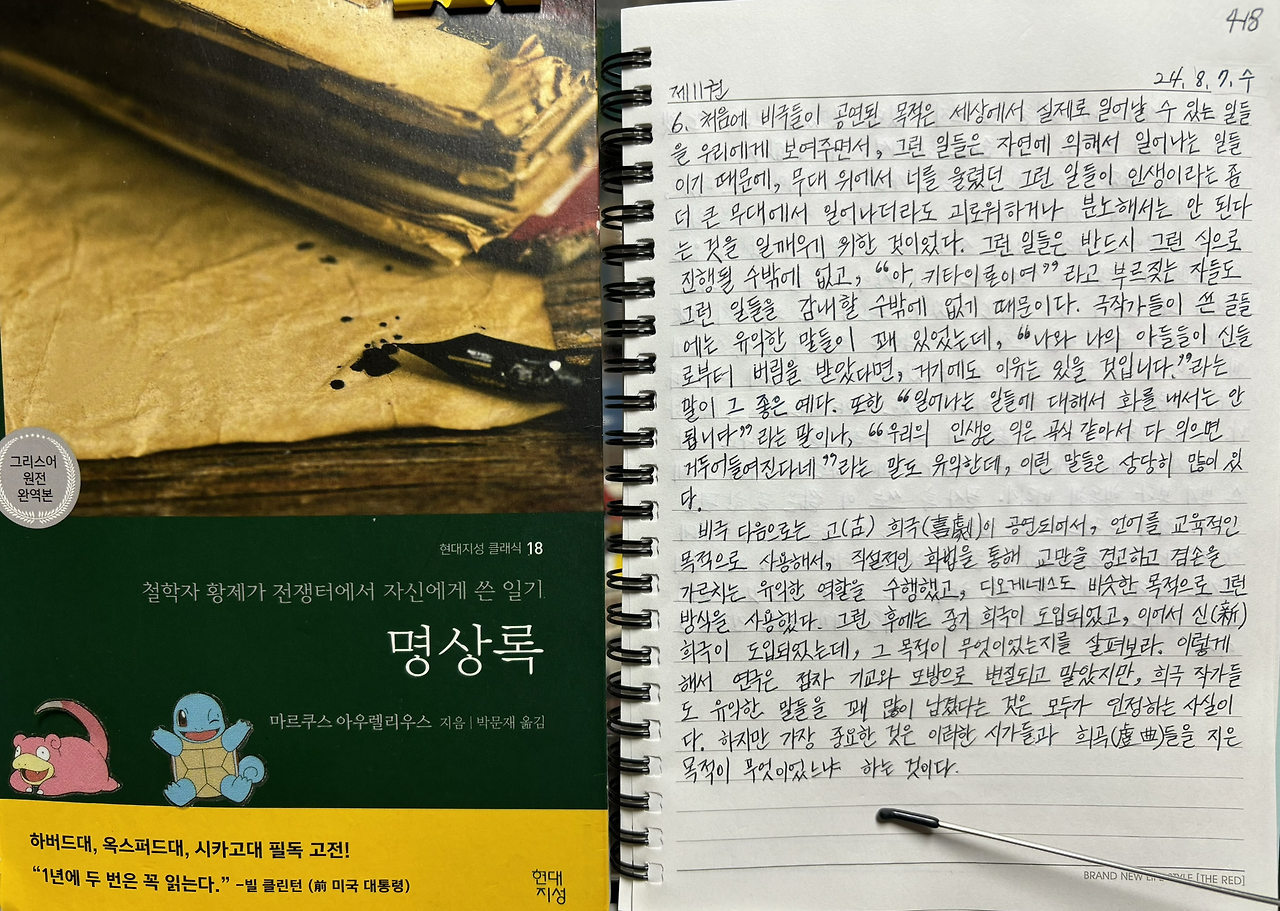 그리스어
원전
완역본
현대지성 클래식 18
철학자 황제가 전쟁터에서 자신에게 쓴 일기
명상록
마르쿠스 아우렐리우스 지음 | 박문재 옮김
하버드대, 옥스퍼드대, 시카고대 필독 고전!
“1년에 두 번은 꼭 읽는다.” -빌 클린턴 (前 미국 대통령)
현대
지성
418
제11권
24. 8. 7. 수
6. 처음에 비극들이 공연된 목적은 세상에서 실제로 일어날 수 있는 일들
을 우리에게 보여주면서, 그런 일들은 자연에 의해서 일어나는 일들
이기 때문에, 무대 위에서 너를 울렸던 그런 일들이 인생이라는 좀
더 큰 무대에서 일어나더라도 괴로워하거나 분노해서는 안 된다
는 것을 일깨우기 위한 것이었다. 그런 일들은 반드시 그런 식으로
진행될 수밖에 없고, “아, 키타이론이여” 라고 부르짖는 자들도
그런 일들을 감내할 수밖에 없기 때문이다. 극작가들이 쓴 글들
에는 유익한 말들이 꽤 있었는데, “나와 나의 아들들이 신들
로부터 버림을 받았다면, 거기에도 이유는 있을 것입니다.”라는
말이 그 좋은 예다. 또한 “일어나는 일들에 대해서 화를 내서는 안
됩니다” 라는 말이나, “우리의 인생은 익은 곡식 같아서 다 익으면
거두어들여진다네”라는 말도 유익한데, 이런 말들은 상당히 많이 있
다.
비극 다음으로는 고(古) 희극(喜劇)이 공연되어서, 언어를 교육적인
목적으로 사용해서, 직설적인 화법을 통해 교만을 경고하고 겸손을
가르치는 유익한 역할을 수행했고, 디오게네스도 비슷한 목적으로 그런
방식을 사용했다. 그런 후에는 중기 희극이 도입되었고, 이어서 신(新)
희극이 도입되었는데, 그 목적이 무엇이었는지를 살펴보라. 이렇게
해서 연극은 점차 기교와 모방으로 변질되고 말았지만, 희극 작가들
도 유익한 말들을 꽤 많이 남겼다는 것은 모두가 인정하는 사실이
다. 하지만 가장 중요한 것은 이러한 시가들과 희곡(虛曲)들을 지은
목적이 무엇이었느냐 하는 것이다.
BRAND NEW LIFE STYLE [THE RED]